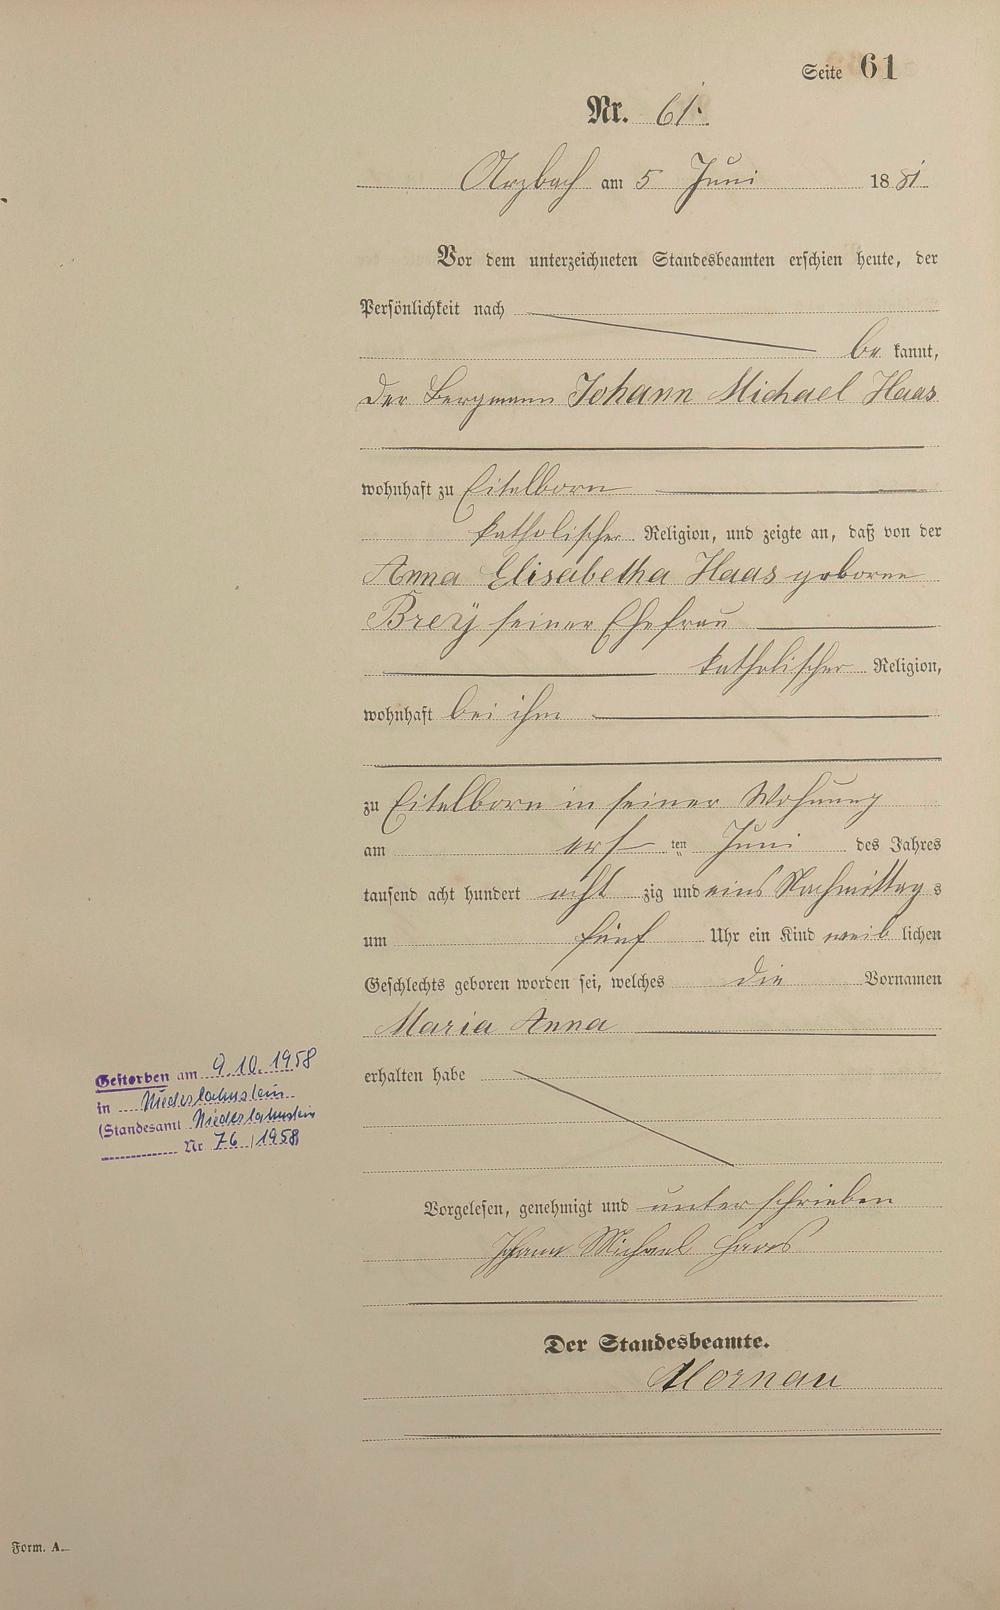 Seite 61
Nr. 61.
Arzbach am 5 Juni 1881
Vor dem unterzeichneten Standesbeamten erschien heute, der
Persönlichkeit nach
be kannt,
der Bergmann Johann Michael Haas
wohnhaft zu Eitelborn
katholischer Religion, und zeigte an, daß von der
Anna Elisabetha Haas geborene
Breÿ seiner Ehefrau
katholischer Religion,
wohnhaft bei ihm
zu Eitelborn in seiner Wohnung
am ers ten Juni des Jahres
tausend acht hundert acht zig und eins Nachmittag s
um fünf Uhr ein Kind weib lichen
Geschlechts geboren worden sei, welches die Vornamen
Maria Anna
erhalten habe
Gestorben am 9.10.1958
in Niederlahnstein
(Standesamt Niederlahnstein
Nr 76/1958)
Vorgelesen, genehmigt und unterschrieben
Johann Michael Haas
Der Standesbeamte.
Mornau
Form. A.